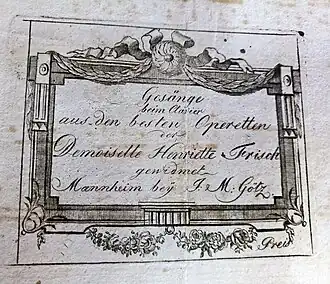 Gesänge
beim Clavier
aus den besten Operetten
der
Demoiselle Henriette Frisch
gewidmet
Mannheim beÿ J: M: Götz
Preis